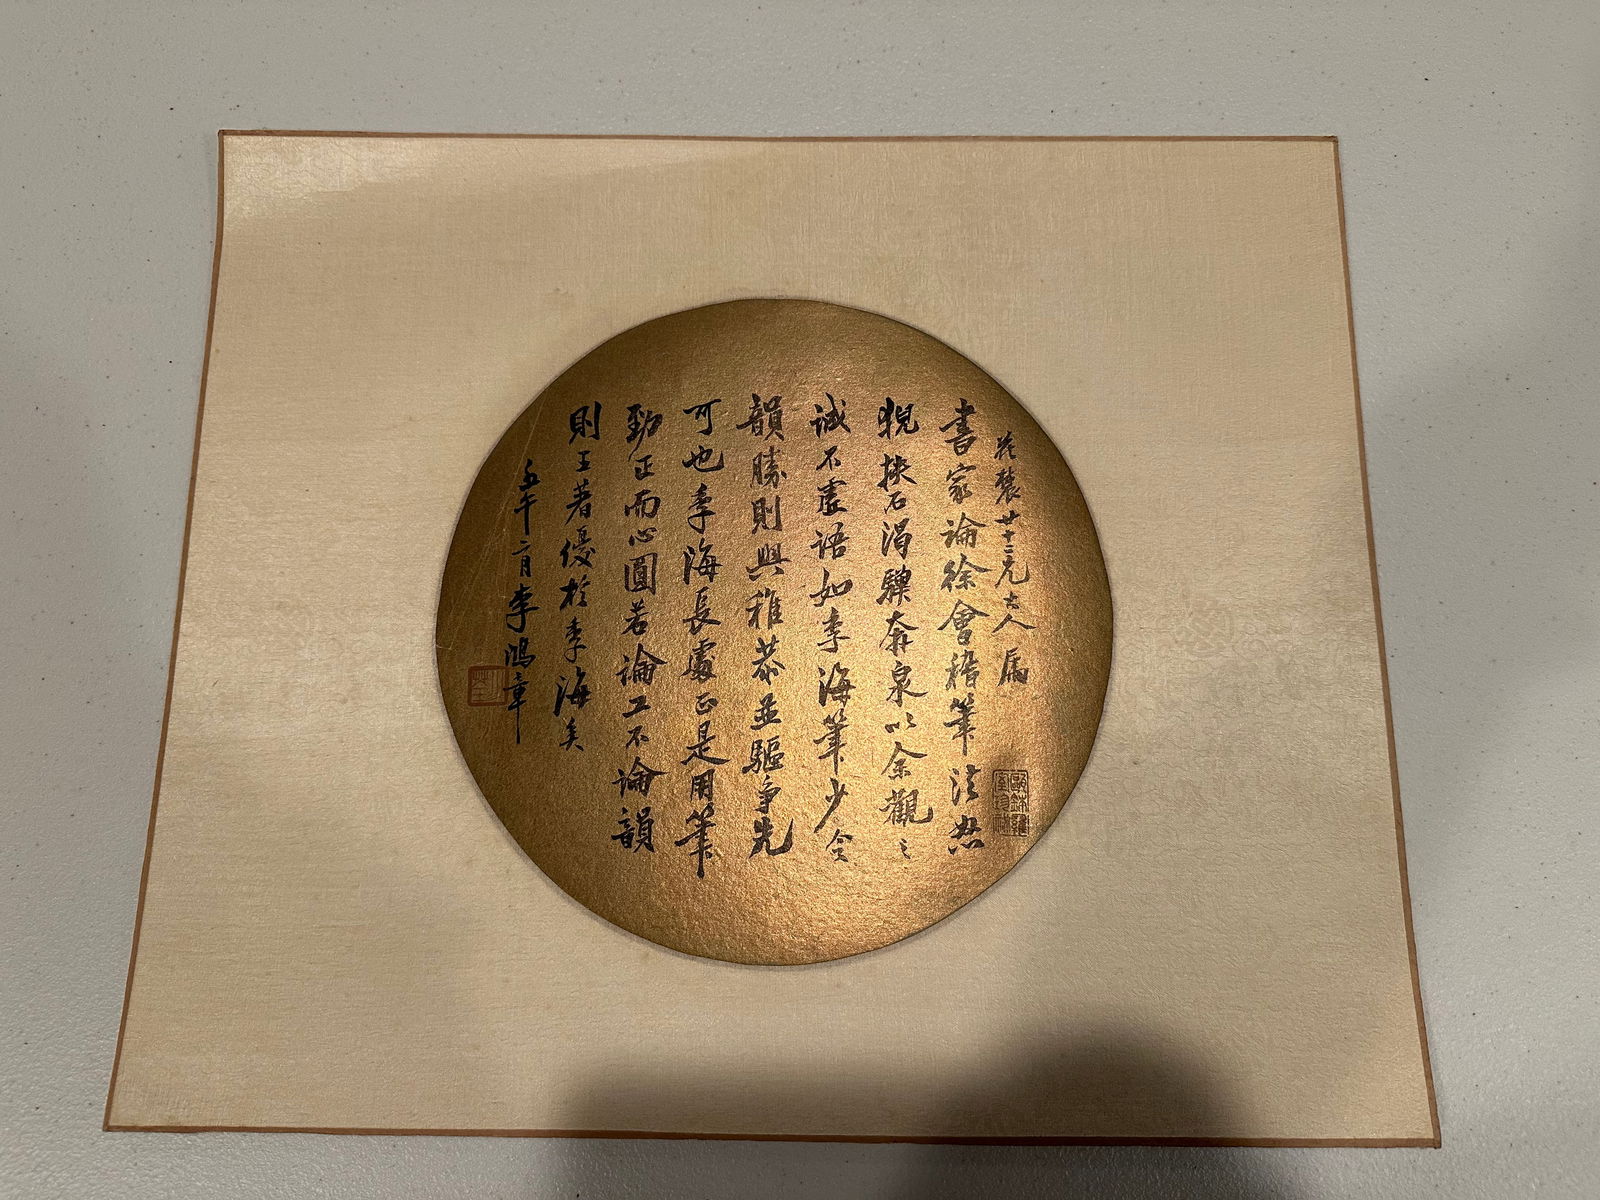 廿二兄大人属
書家論徐會稽筆法怒
猊抉石渴驥奔泉以余觀之
誠不虛語如季海筆少令
韻勝則與稚恭並驅爭先
可也季海長處正是用筆
勁正而心圓若論工不論韻
則王著優於季海矣
午二月李鴻章